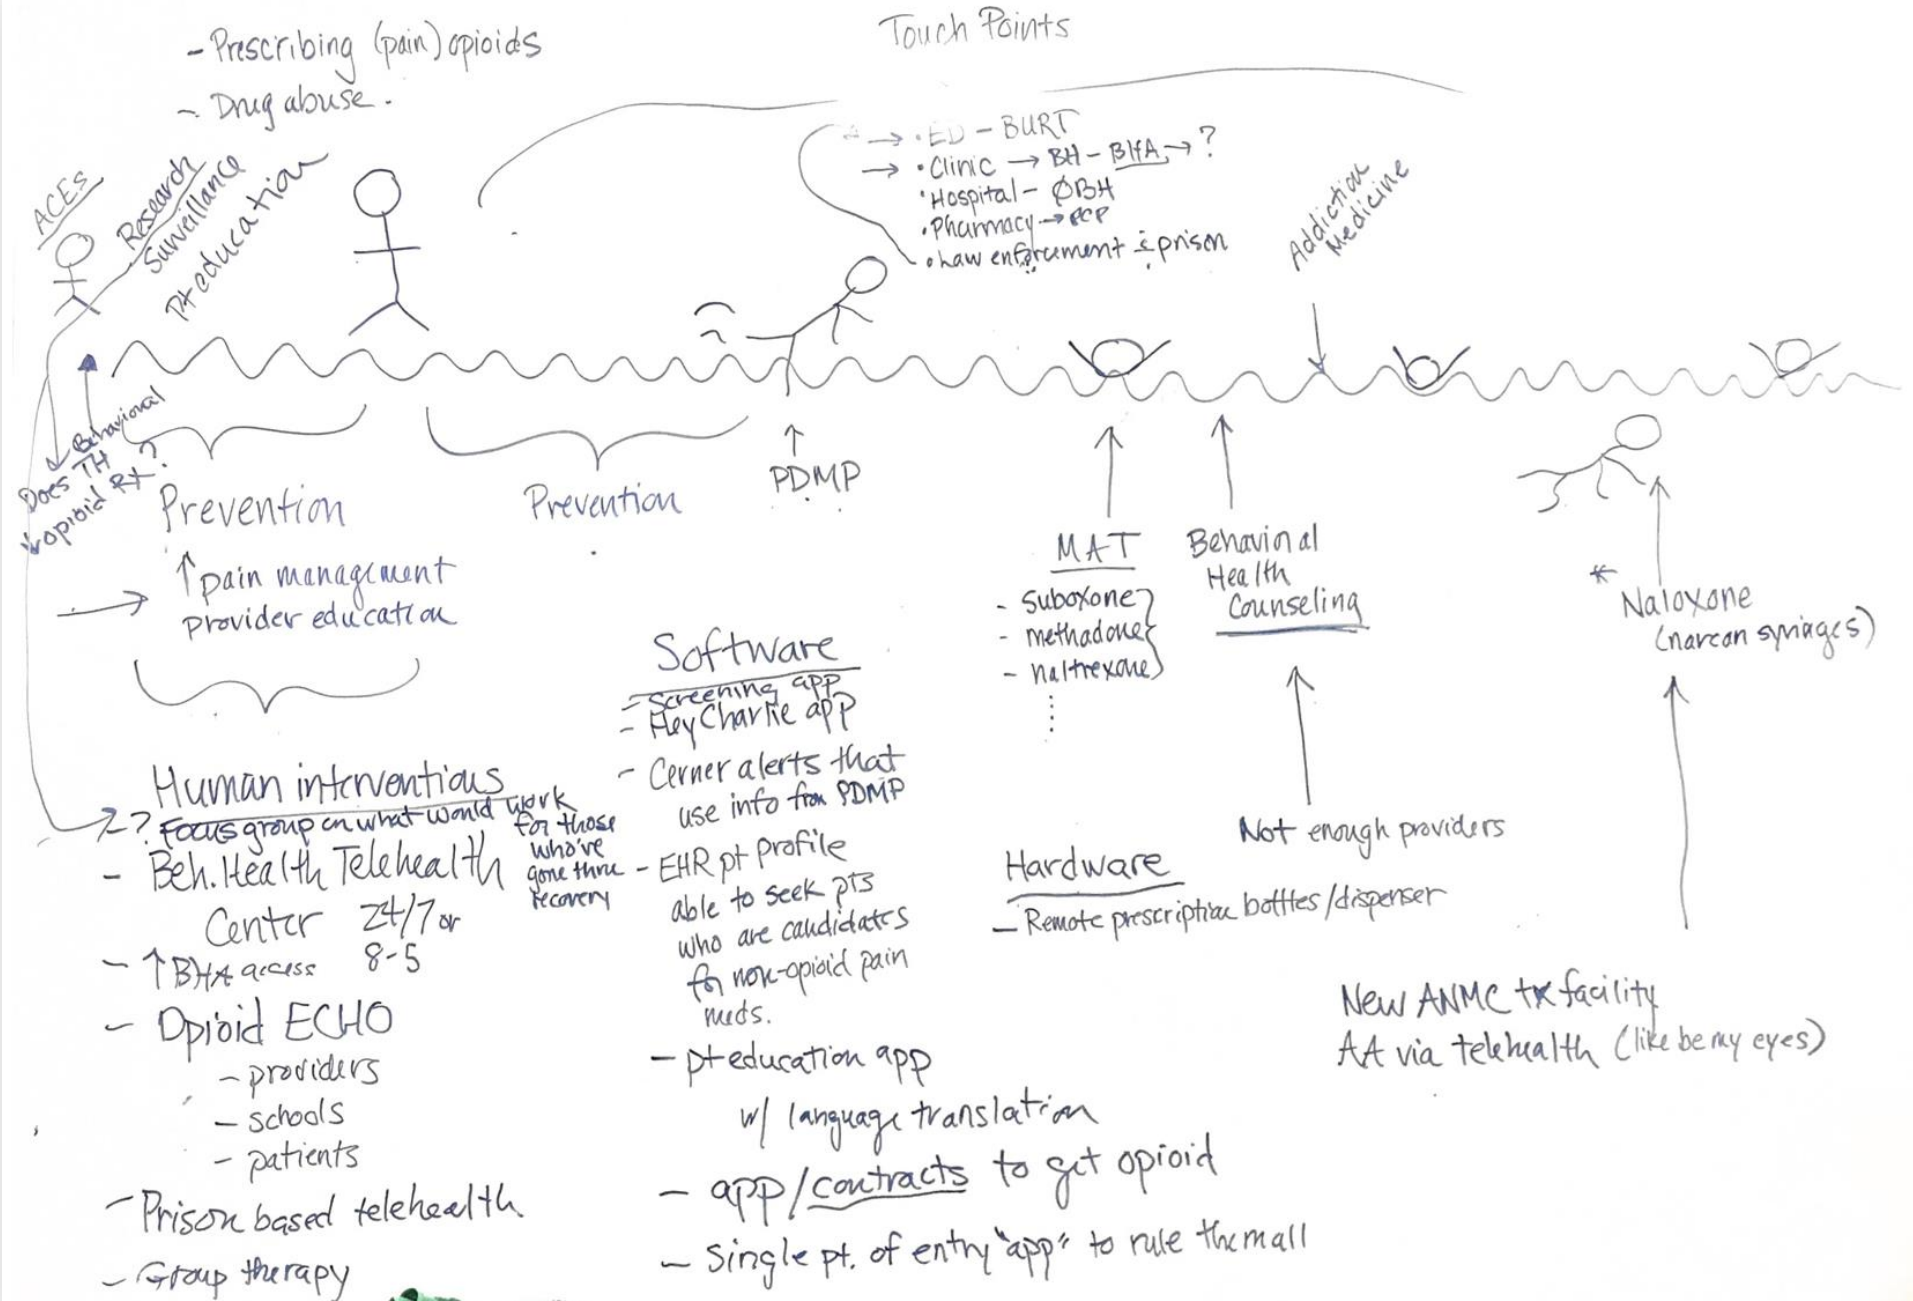 - Prescribing (pain) opioids
- Drug abuse.
Touch Points
ACEs
Research
Surveillance
Pt education
→ • ED - BURT
→ • Clinic → BH - BHA → ?
• Hospital - ØBH
• Pharmacy → PCP
• Law enforcement & prison
Addiction
Medicine
Behavioral
Does TH
↓ opioid RX?
Prevention
Prevention
PDMP
↑ pain management
provider education
MAT
- suboxone
- methadone
- naltrexone
Behavioral
Health
Counseling
* Naloxone
(narcan syringes)
Not enough providers
Human interventions
? Focus group on what would work
for those
who've
gone thru
recovery
- Beh. Health Telehealth
Center 24/7 or
8-5
- ↑ BHA access
- Opioid ECHO
- providers
- schools
- patients
- Prison based telehealth
- Group therapy
Software
- Screening app
- Hey Charlie app
- Cerner alerts that
use info from PDMP
- EHR pt profile
able to seek pts
who are candidates
for non-opioid pain
meds.
- pt education app
w/ language translation
- app/contracts to get opioid
- Single pt. of entry "app" to rule them all
Hardware
- Remote prescription bottles/dispenser
New ANMC tx facility
AA via telehealth (like be my eyes)